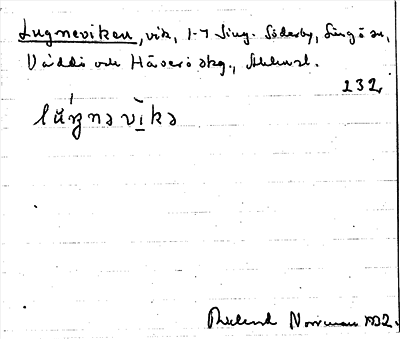 Lugneviken, vik, 1-7 Sing. Söderby, Singö sn,
Väddö och Häverö skg., Sthlmsl.
232
lúŋnəvìkə
Rickard Norrman 1932.